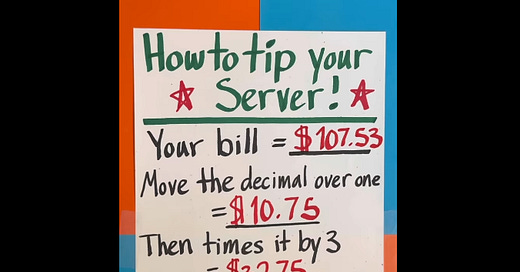 How to tip your
Server!
Your bill = $107.53
Move the decimal over one
= $10.75
Then times it by 3
=